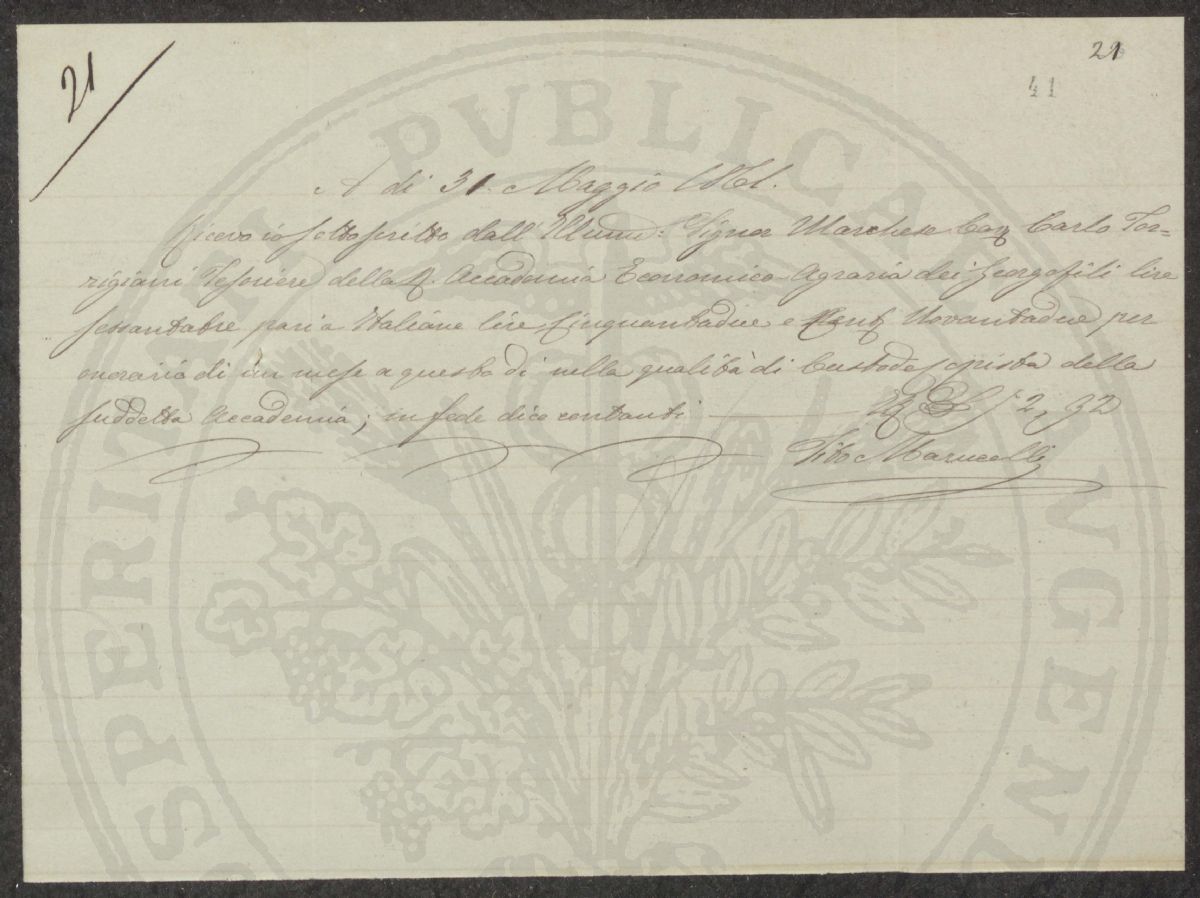 21
21
41
A di 31. Maggio 1861.
Ricevo io sottoscritto dall' Illumo: Signor Marchese Cav Carlo Tor=
rigiani Tesoriere della R. Accademia Economico-Agraria dei Georgofili lire
sessantatre pari a Italiane lire Cinquantadue e Cent Novantadue per
onorario di un mese a questo dì nella qualità di Custode copista della
suddetta Accademia; in fede dico contanti 52, 92
Tito Marucelli
PROSPERITATI PVBLICAE AVGENDAE